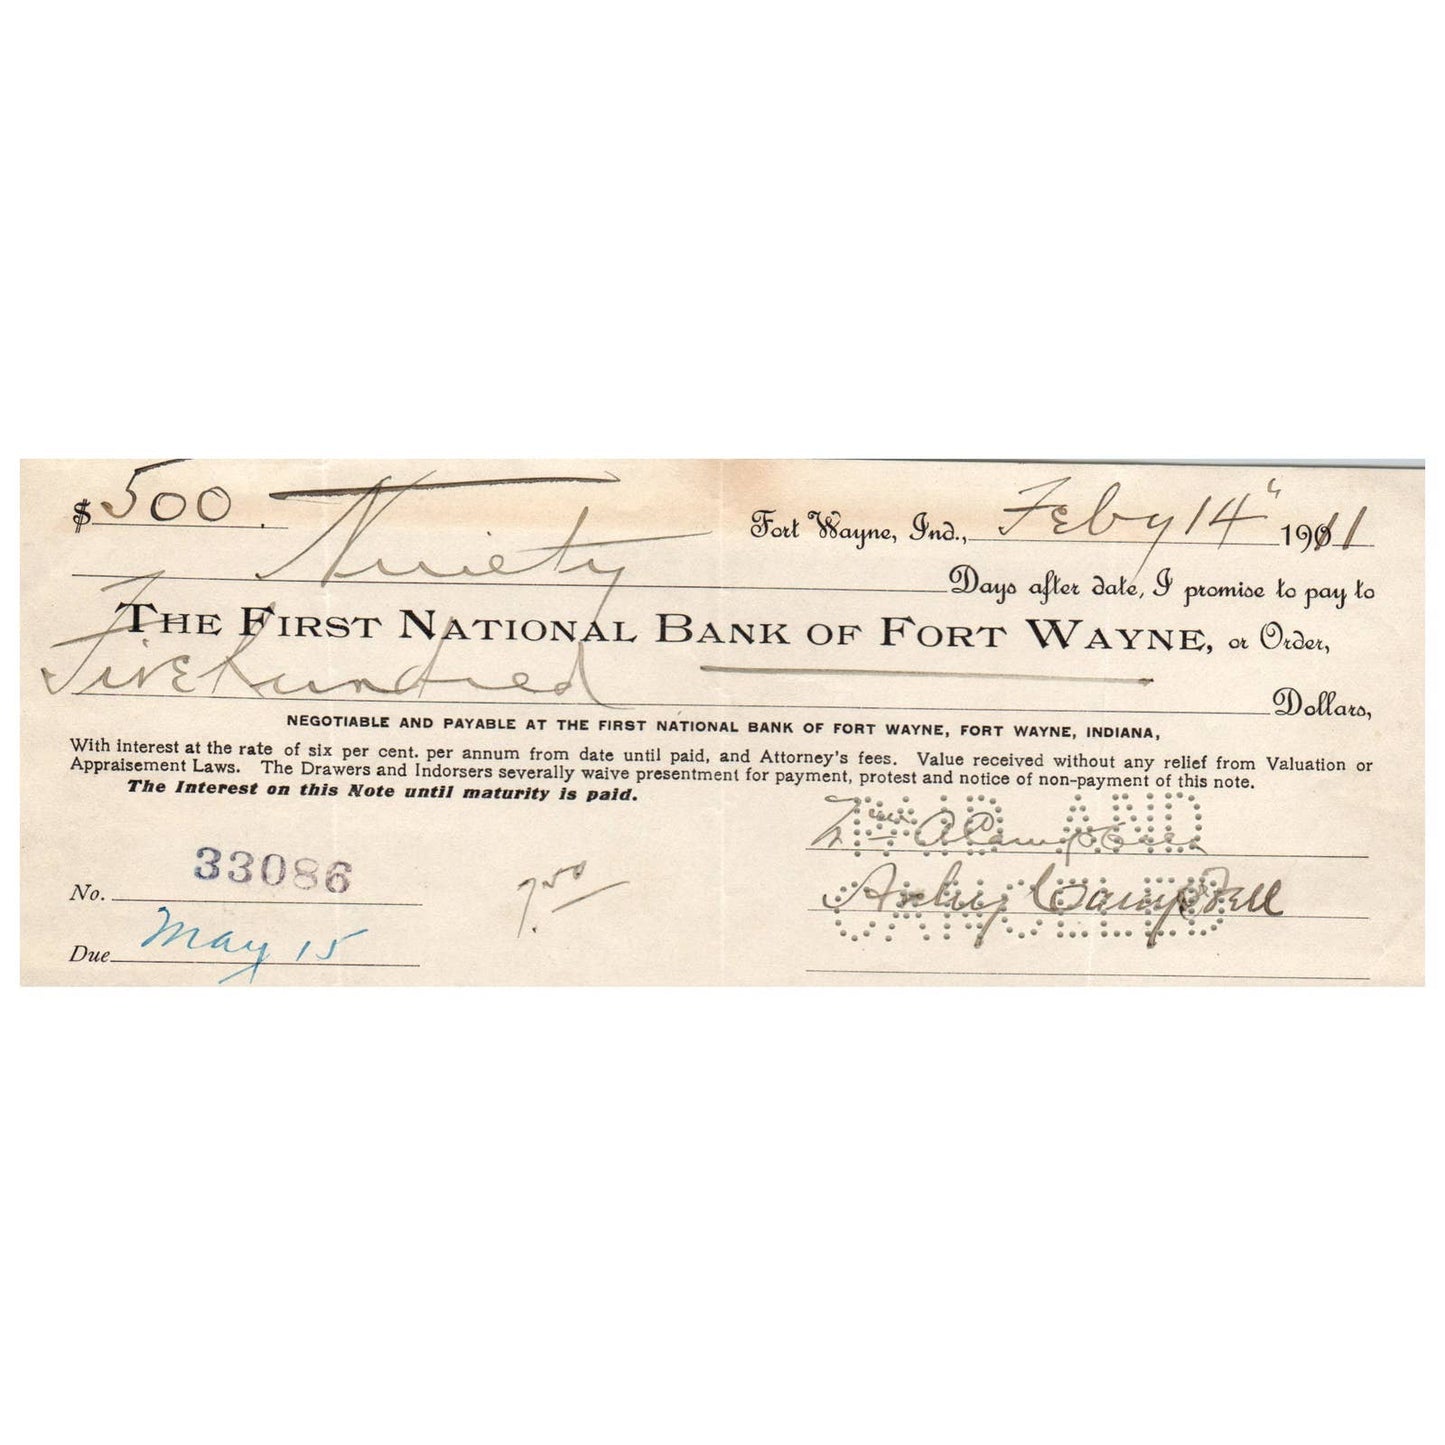 $ 500.
Fort Wayne, Ind., Feby 14" 1911
Ninety Days after date, I promise to pay to
THE FIRST NATIONAL BANK OF FORT WAYNE, or Order,
Five hundred Dollars,
NEGOTIABLE AND PAYABLE AT THE FIRST NATIONAL BANK OF FORT WAYNE, FORT WAYNE, INDIANA,
With interest at the rate of six per cent. per annum from date until paid, and Attorney's fees. Value received without any relief from Valuation or
Appraisement Laws. The Drawers and Indorsers severally waive presentment for payment, protest and notice of non-payment of this note.
The Interest on this Note until maturity is paid.
PAID AND
CANCELLED
Wm A Campbell
Campbell
No. 33086
7.50
Due May 15